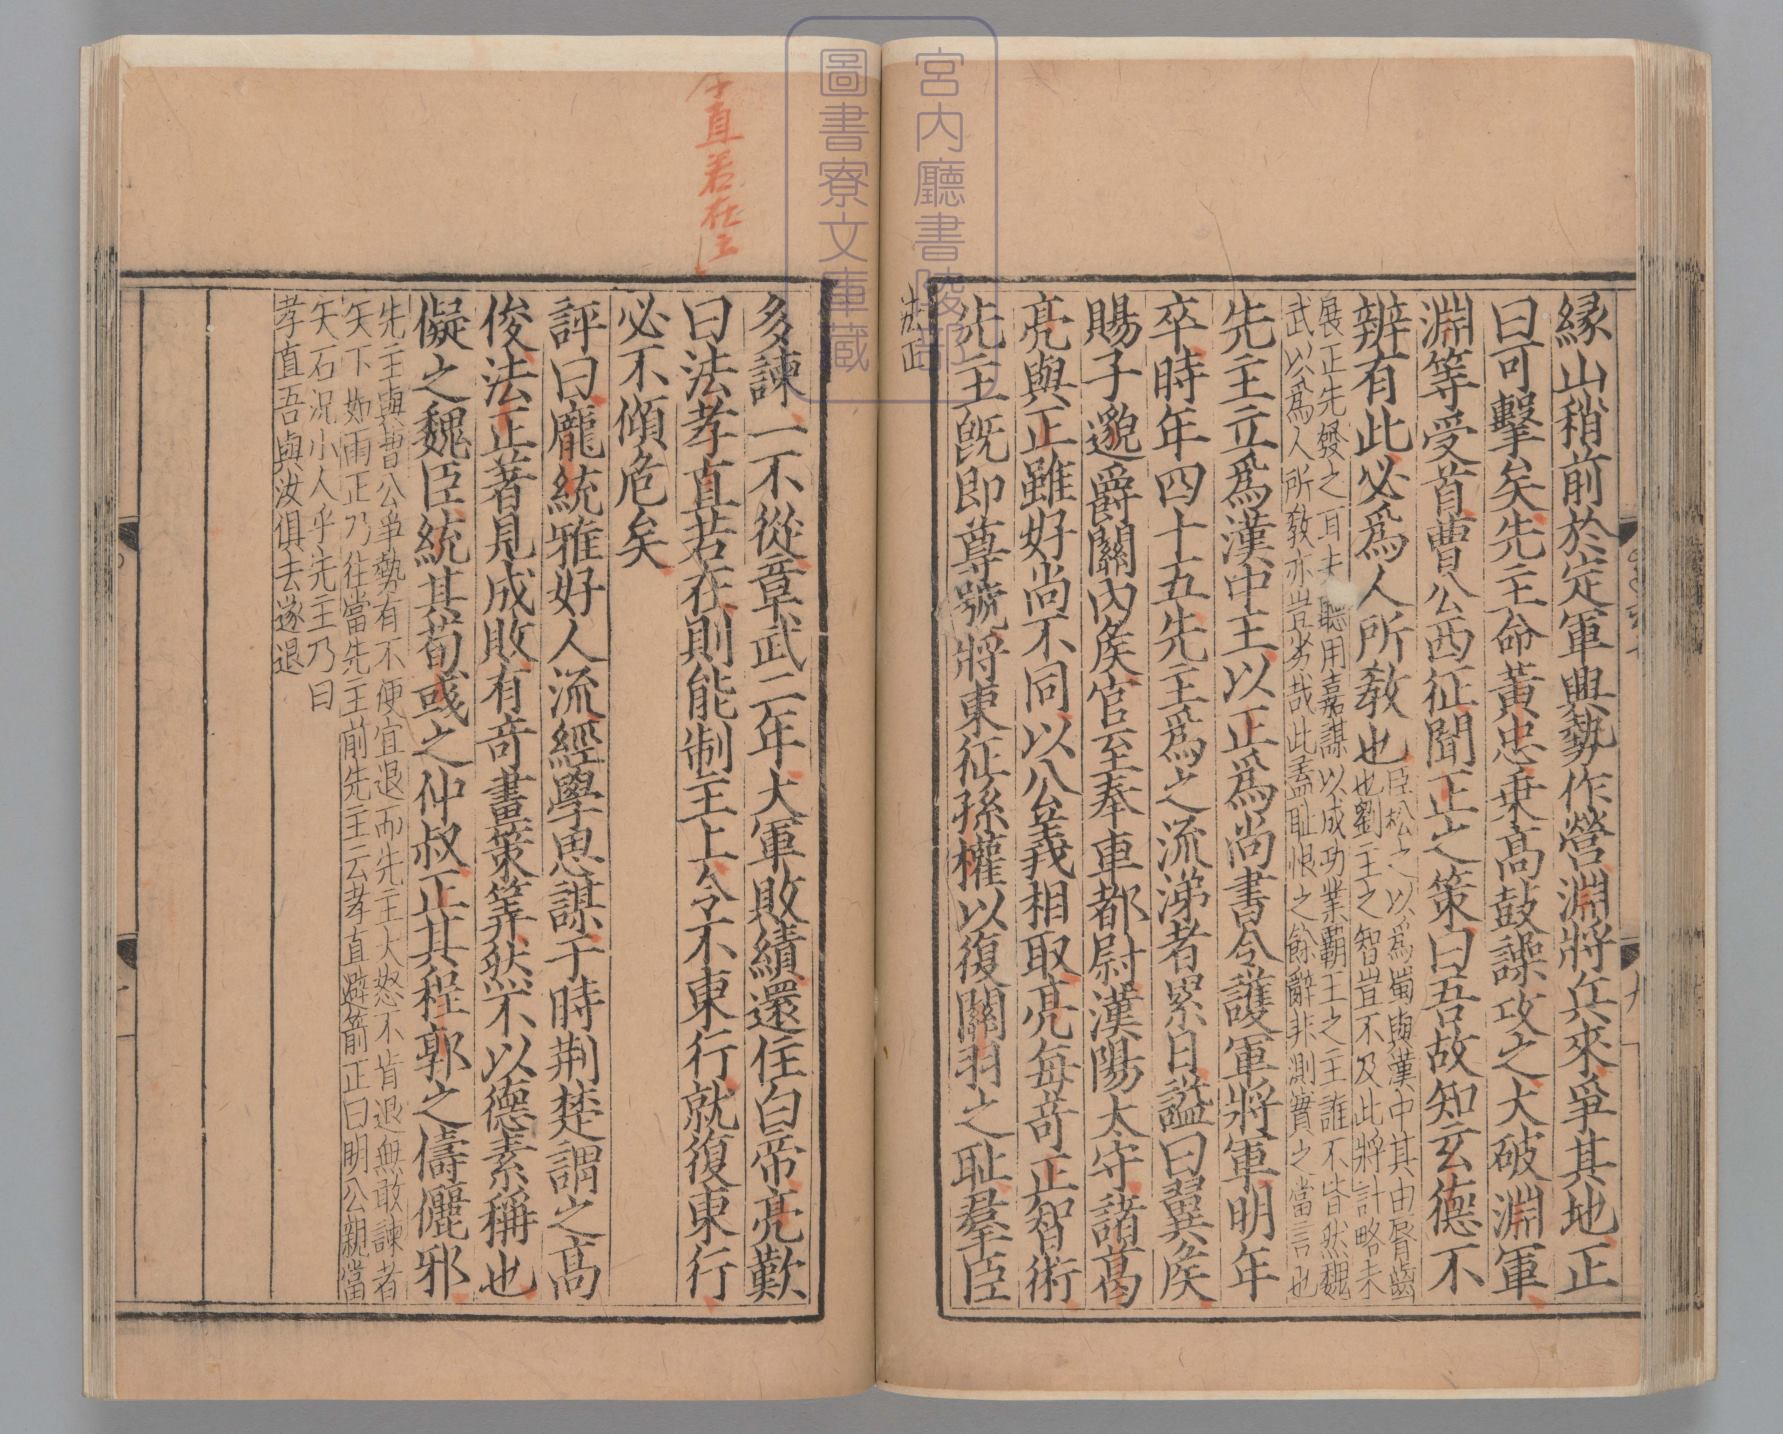 宮内廳書陵部
圖書寮文庫蔵
縁山稍前於定軍興勢作營淵將兵來爭其地正
曰可擊矣先主命黃忠乗髙鼓譟攻之大破淵軍
淵等受首曹公西征聞正之策曰吾故知玄德不
辨有此必爲人所敎也
臣松之以爲蜀與漢中其由脣齒
也劉主之智豈不及此將計略未
展正先發之耳夫聽用嘉謀以成功業霸王之主誰不皆然魏
武以爲人所敎亦豈劣哉此盖耻恨之餘辭非測實之當言也
先主立爲漢中王以正爲尚書令護軍將軍明年
卒時年四十五先主爲之流涕者累日諡曰翼矦
賜子邈爵關内矦官至奉車都尉漢陽太守諸葛
亮與正雖好尚不同以公義相取亮每竒正智術
先主旣即尊號將東征孫權以復關羽之耻羣臣
法正
直若在
多諫一不從章武二年大軍敗績還住白帝亮歎
曰法孝直若在則能制主上令不東行就復東行
必不傾危矣
評曰龐統雅好人流經學思謀于時荆楚謂之髙
俊法正著見成敗有竒畫策筭然不以德素稱也
儗之魏臣統其荀彧之仲叔正其程郭之儔儷邪
先主與曹公爭勢有不便宜退而先主大怒不肯退無敢諫者
矢下如雨正乃往當先主前先主云孝直避箭正曰明公親當
矢石況小人乎先主乃曰
孝直吾與汝俱去遂退